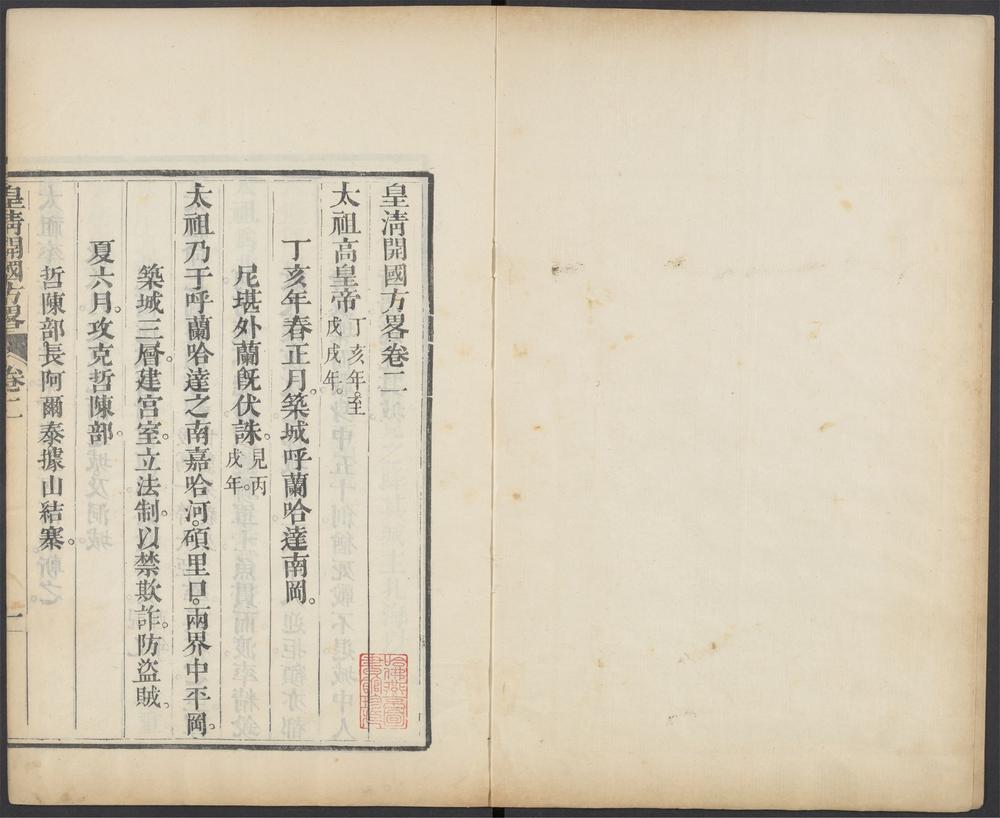 皇淸開國方畧卷二
太祖高皇帝丁亥年至戊戌年。
丁亥年春正月。築城呼蘭哈達南岡。
尼堪外蘭旣伏誅。見丙戌年。
太祖乃于呼蘭哈達之南嘉哈河。碩里口。兩界中平岡。
築城三層。建宮室。立法制。以禁欺詐。防盜賊。
夏六月。攻克哲陳部。
哲陳部長阿爾泰據山結寨。
皇淸開國方畧 卷二 一